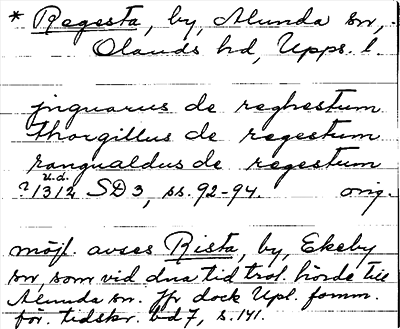 * Regesta, by, Alunda sn,
Olands hd, Upps. l.
jnguarus de reghestum
thorgillus de regestum
rangualdus de regestum
u.d.
?1312 SD 3, ss. 92-94. orig.
möjl. avses Rista, by, Ekeby
sn, som vid dna tid trol. hörde till
Alunda sn. Jfr dock Upl. fornm.
för. tidskr. bd 7, s. 141.